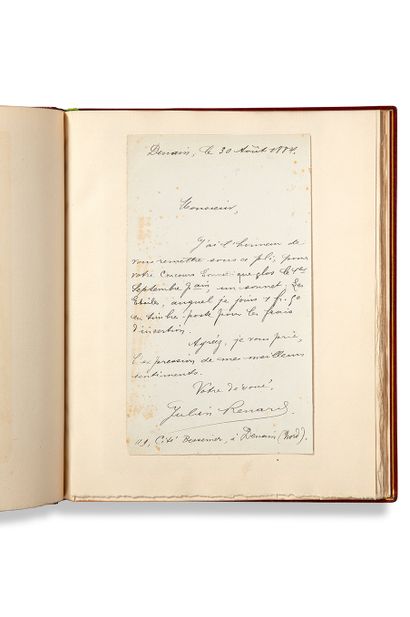 Denain, le 30 Août 1884.
Monsieur,
J'ai l'honneur de
vous remettre sous ce pli, pour
votre Concours qui clos le 1er
Septembre un sonnet, Les
Étoiles, auquel je joins 1 fr. 50
en timbre-poste pour les frais
d'insertion.
Agréez, je vous prie,
l'expression de mes meilleurs
sentiments.
Votre dévoué,
Julien Renard
Cité Bessemer, à Denain (Nord).